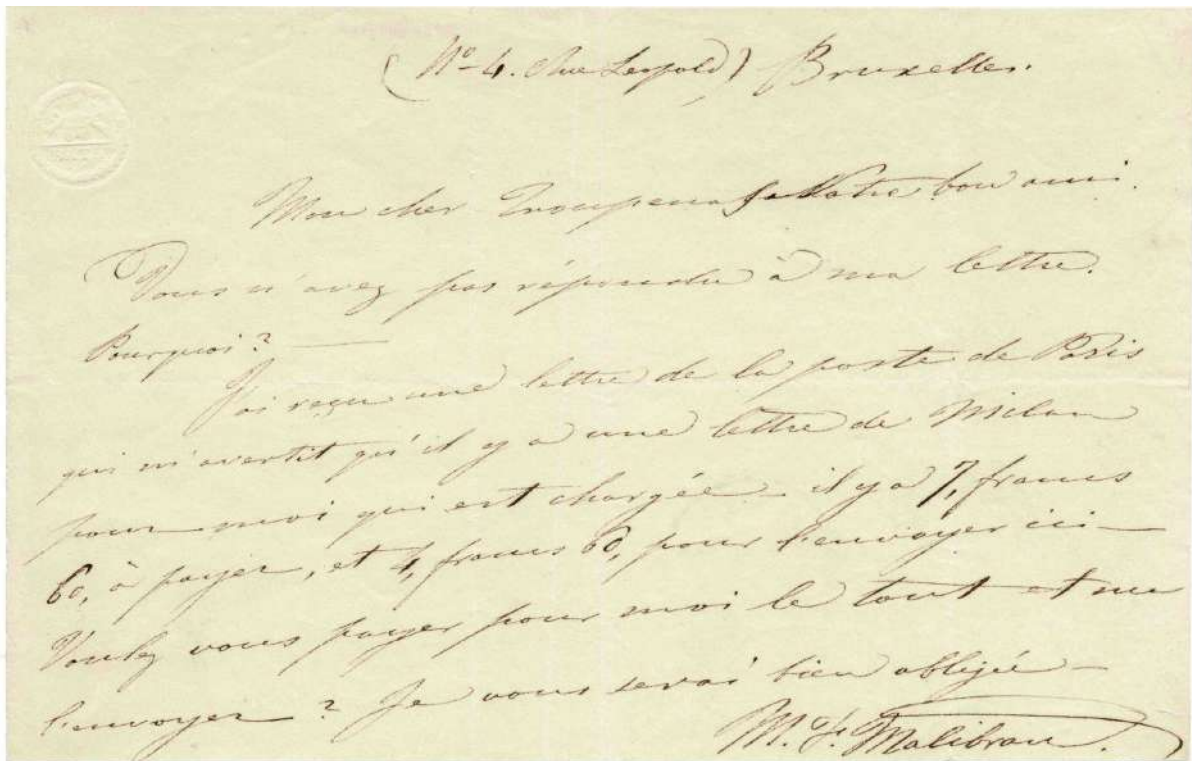 (N° 4. Rue Leopold) Bruxelles.
Mon cher Troupenas Notre bon ami.
Vous n'avez pas répondu à ma lettre.
Pourquoi? —
J'ai reçu une lettre de la poste de Paris
qui m'avertit qu'il y a une lettre de Milan
pour moi qui est chargée – il y a 7, francs
60, à payer, et 4, francs 60, pour l'envoyer ici –
Voulez vous payer pour moi le tout et me
l'envoyer? Je vous serai bien obligée –
M. F. Malibran.